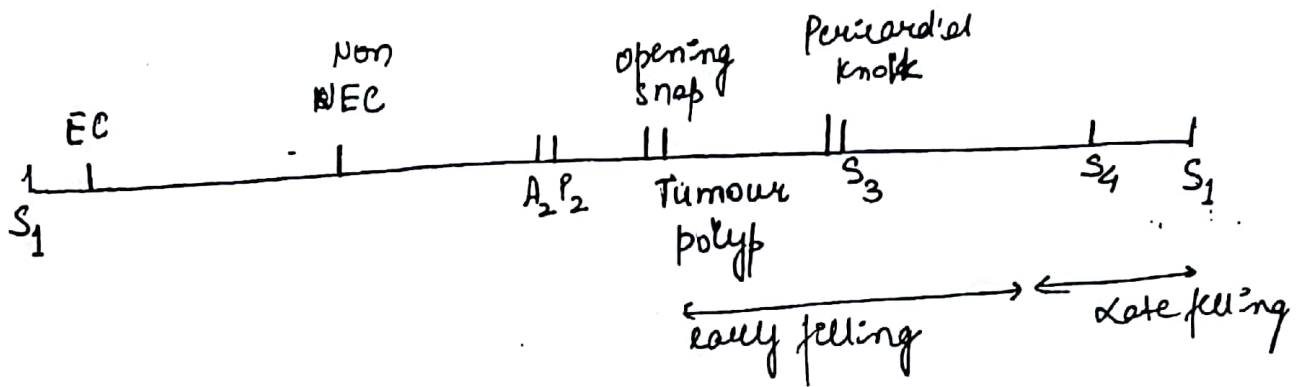 Non
NEC
EC
Opening
snap
Pericardial
Knock
S1
A2 P2
Tumour
polyp
S3
S4
S1
early filling
Late filling